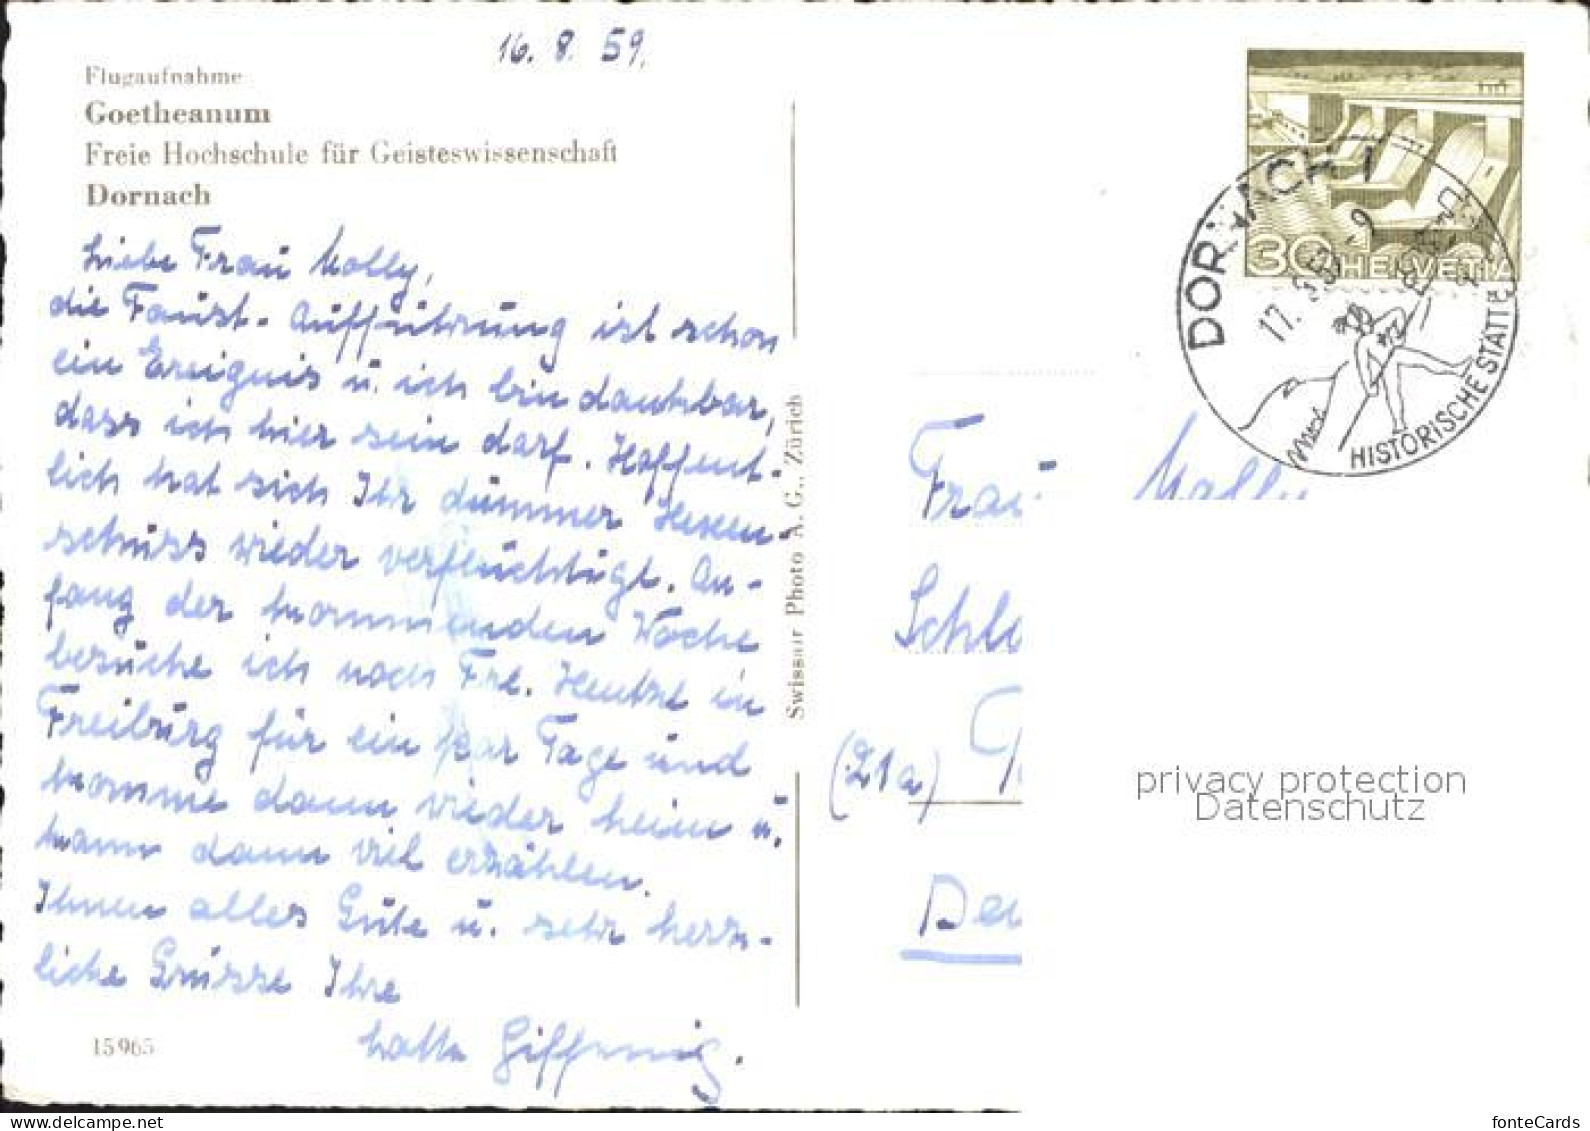 16. 8. 59.
Flugaufnahme
Goetheanum
Freie Hochschule für Geisteswissenschaft
Dornach
Liebe Frau Molly,
die Faust-Aufführung ist schon
ein Ereignis u. ich bin dankbar,
dass ich hier sein darf. Hoffent-
lich hat sich Ihr dummer Hexen-
schuss wieder verflüchtigt. An-
fang der kommenden Woche
besuche ich noch Frl. in
Freiburg für ein paar Tage und
komme dann wieder heim u.
kann dann viel erzählen.
Ihnen alles Gute u. sehr herz-
liche Grüsse Ihre
15965
Swissair Photo A. G., Zürich
30 HELVETIA
DORNACH 1
17. 59 - 9
HISTORISCHE STÄTTE
Frau Molly
Schlo
(21a) G
Deu
privacy protection
Datenschutz
delcampe.net
fonteCards